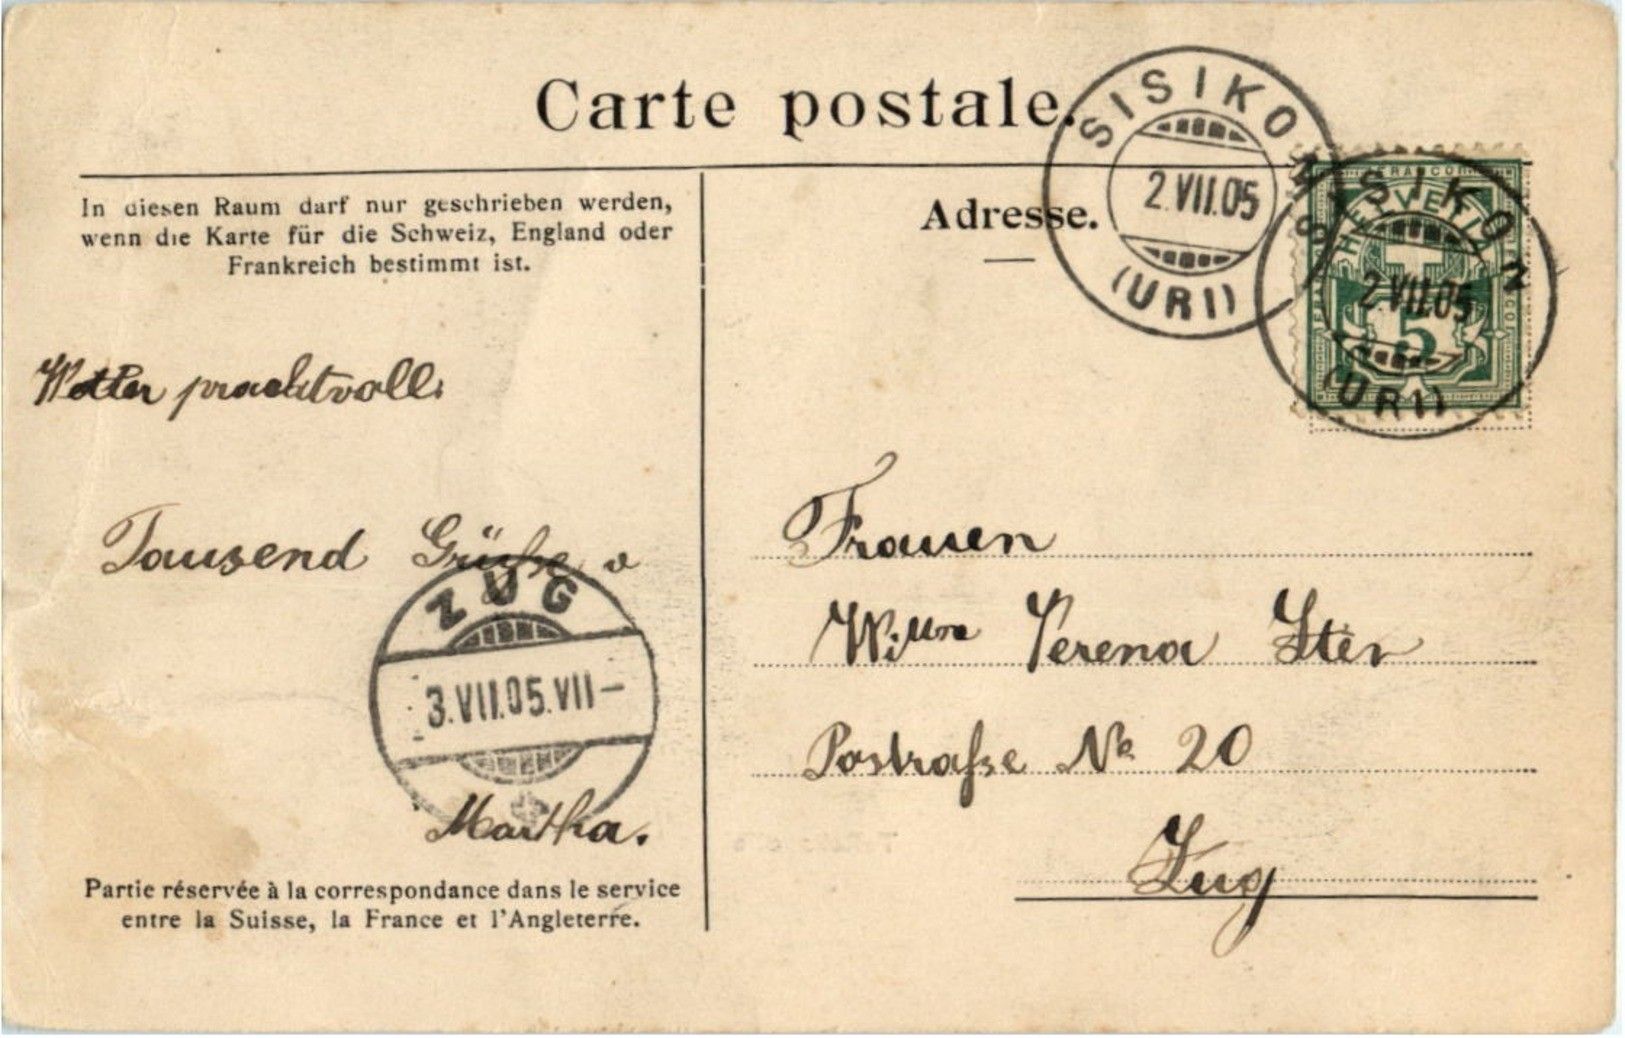 Carte postale.
In diesen Raum darf nur geschrieben werden,
wenn die Karte für die Schweiz, England oder
Frankreich bestimmt ist.
Adresse.
SISIKON
2.VII.05
(URI)
SISIKON
2.VII.05
(URI)
FRANCO
HELVETIA
5
Wetter prachtvoll.
Tausend Grüsse v
ZUG
3.VII.05.VII-
Martha.
Frauen
Verena Iten
Postrasse No 20
Zug
Partie réservée à la correspondance dans le service
entre la Suisse, la France et l'Angleterre.